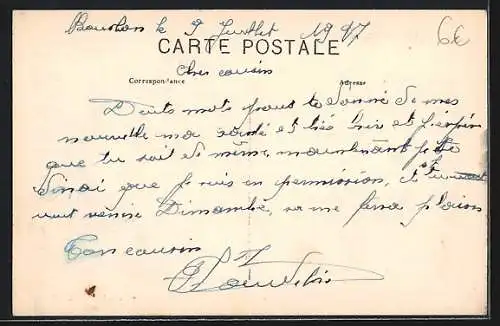 le 9 Juillet 1917
6€
CARTE POSTALE
Cher cousin
Correspondance
Adresse
Deuts mots pour te donné de mes
nouvelle ma santé et très bien et j'espèr
que tu soit de même, maintenant je te
dirai que je suis en permission, et
veut venire Dimanche, sa me fera plaisir
Ton cousin